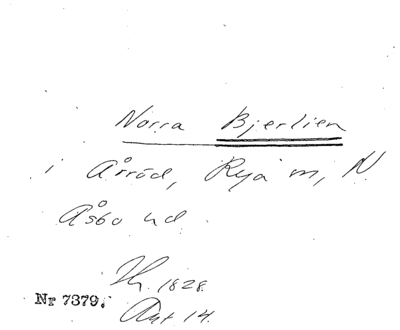 Norra Bjerlien
i Årröd, Rya m, N
Åsbo hd.
Th. 1828.
Nr 7379.
Ant 14.